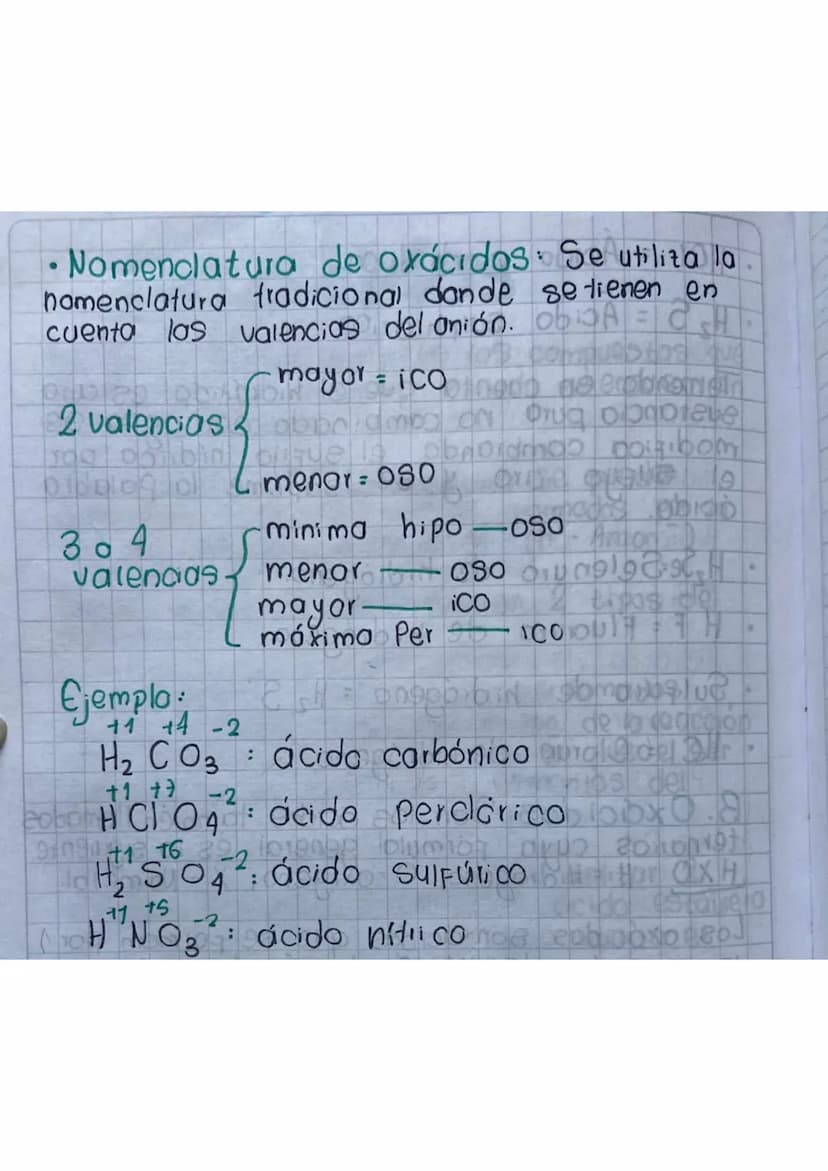 • Nomenclatura de oxácidos: Se utiliza la
nomenclatura tradicional donde se tienen en
cuenta las valencias del anión.
2 valencias
mayor = ico
menor = oso
3 o 4
valencias
mínima hipo — oso
menor — oso
mayor — ico
máxima Per — ico
Ejemplo:
+1 +4 -2
H₂ CO₃ : ácido carbónico
+1 +7 -2
H Cl O₄ : ácido perclórico
+1 +6 -2
H₂ S O₄ : ácido sulfúrico
+1 +5 -2
H NO₃ : ácido nítrico